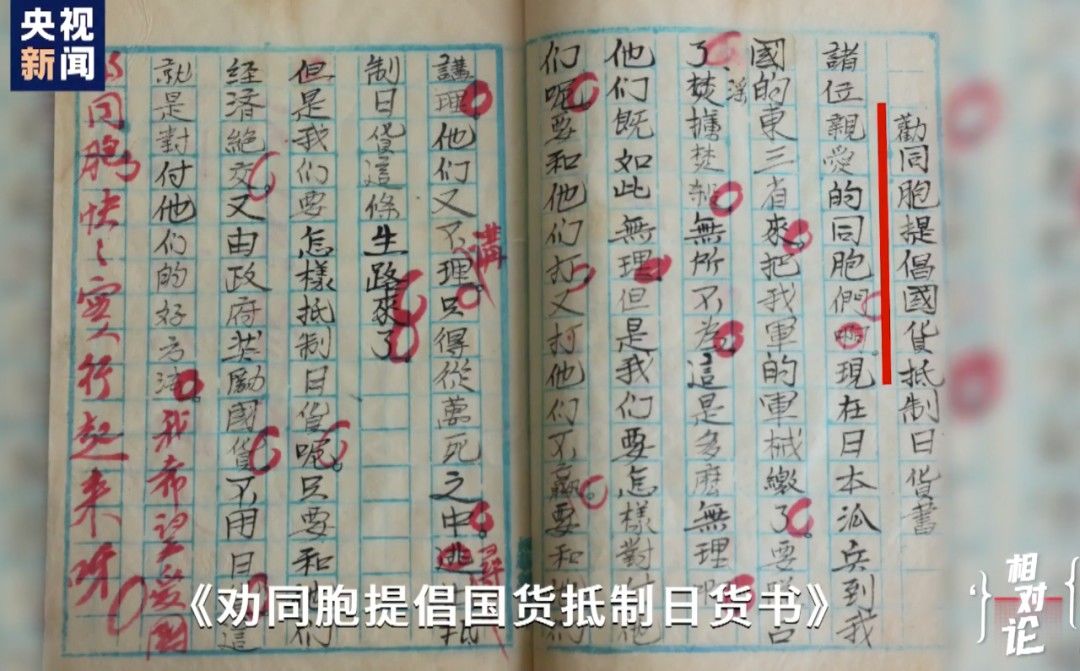 央视
新闻
勸同胞提倡國貨抵制日貨書
諸位親愛的同胞們 現在日本派兵到我
國的東三省來把我軍的軍械繳了要
了焚擄焚殺無所不為這是多麽無理呢
淫
他们既如此無理但是我们要怎樣對付他
们呢要和他们打又打他们不贏要和
講理他们又不理只得從萬死之中逃 抵
講
尋
制日貨這條生路來了
但是我们要怎樣抵制日貨呢。只要和他们
経済絶交又由政府奖勵國貨不用日 這
就是對付他们的好方法。我希望爱國
的同胞快々實行起来呀
《劝同胞提倡国货抵制日货书》
相对论